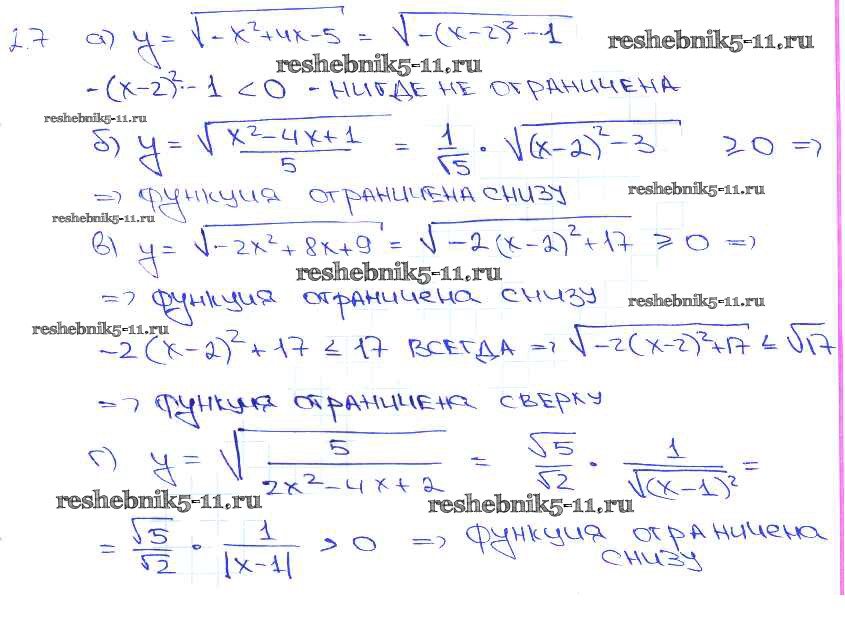 2.7 а) y = √(-x²+4x-5) = √(-(x-2)²-1)
reshebnik5-11.ru
reshebnik5-11.ru
-(x-2)²-1 < 0 - НИГДЕ НЕ ОГРАНИЧЕНА
reshebnik5-11.ru
б) y = √((x²-4x+1)/5) = 1/√5 · √((x-2)²-3) ≥ 0 =>
=> ФУНКЦИЯ ОГРАНИЧЕНА СНИЗУ
reshebnik5-11.ru
reshebnik5-11.ru
в) y = √(-2x²+8x+9) = √(-2(x-2)²+17) ≥ 0 =>
reshebnik5-11.ru
=> ФУНКЦИЯ ОГРАНИЧЕНА СНИЗУ
reshebnik5-11.ru
reshebnik5-11.ru
-2(x-2)²+17 ≤ 17 ВСЕГДА => √(-2(x-2)²+17) ≤ √17
=> ФУНКЦИЯ ОГРАНИЧЕНА СВЕРХУ
г) y = √(5/(2x²-4x+2)) = √5/√2 · 1/√((x-1)²) =
reshebnik5-11.ru
reshebnik5-11.ru
= √5/√2 · 1/|x-1| > 0 => ФУНКЦИЯ ОГРАНИЧЕНА
СНИЗУ